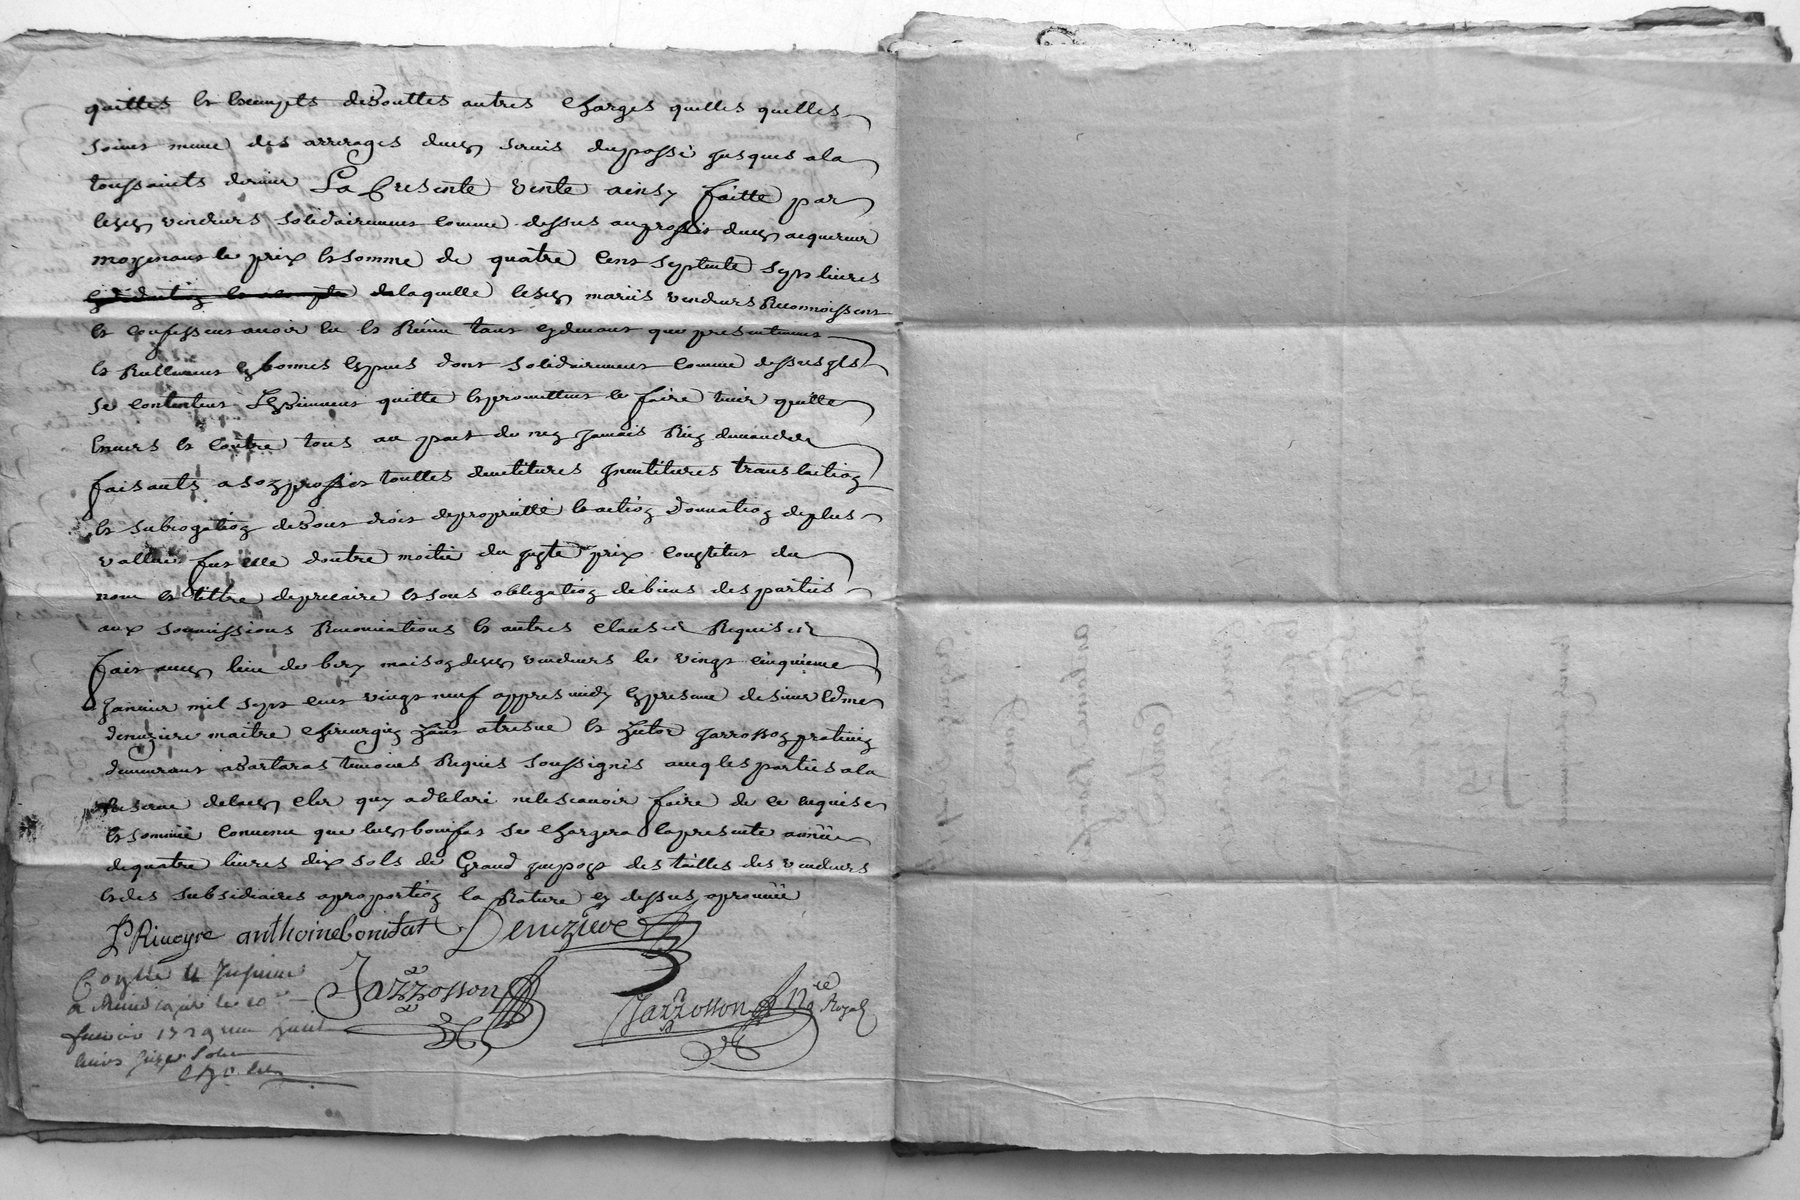 quittes et exempts de touttes autres charges quelles quelles
soient meme des arrerages dud servis du passé jusques a la
toussaints dernier La presente vente ainsy faitte par
lesd vendeurs solidairement comme dessus au proffit dud acquereur
moyenant le prix et somme de quatre cent septente sept livres
de laquelle lesd mariés vendeurs Reconnoissent
et confessent avoir eu et Reçeu tant cydevant que presentement
et Reellement en bonnes espes dont solidairement comme dessus jls
se contentent Len tiennent quitte et promettent le faire tenir quitte
envers et contre tous au pact de ne jamais Rien demander
faisants a son proffit touttes demetitures jnvetitures translation
et subrogation de tout droit de proprietté et action donnation de plus
vallue fut elle doutre moitié du juste prix constitut du
nom et tiltre de precaire et sous obligation de biens des parties
aux soumissions Renonciations et autres clauses Requises
fait aud lieu de bex maison desd vendeurs le vingt cinquieme
janvier mil sept cent vingt neuf appres midy en presence de sieur Edme
denuziere maitre chirurgien hant a tresne et hector jarrosson praticien
demeurant a tartaras temoins Requis soussignés avec les parties a la
Reserve de lad cler quy a declaré ne le scavoir faire de ce enquise
et sommée convenu que led bonifat se chargera la presente année
de quatre livres dix sols de Grand jmpost des tailles des vendeurs
et des subsidiaires a proportion la Rature cy dessus aprouvée
P Riveyre anthoine bonifat Denuziere
Jarrosson
Jarrosson Nre Royal
Conllé et Insinué
a le 10
fevrier 1729 recu huit
livres seize sols